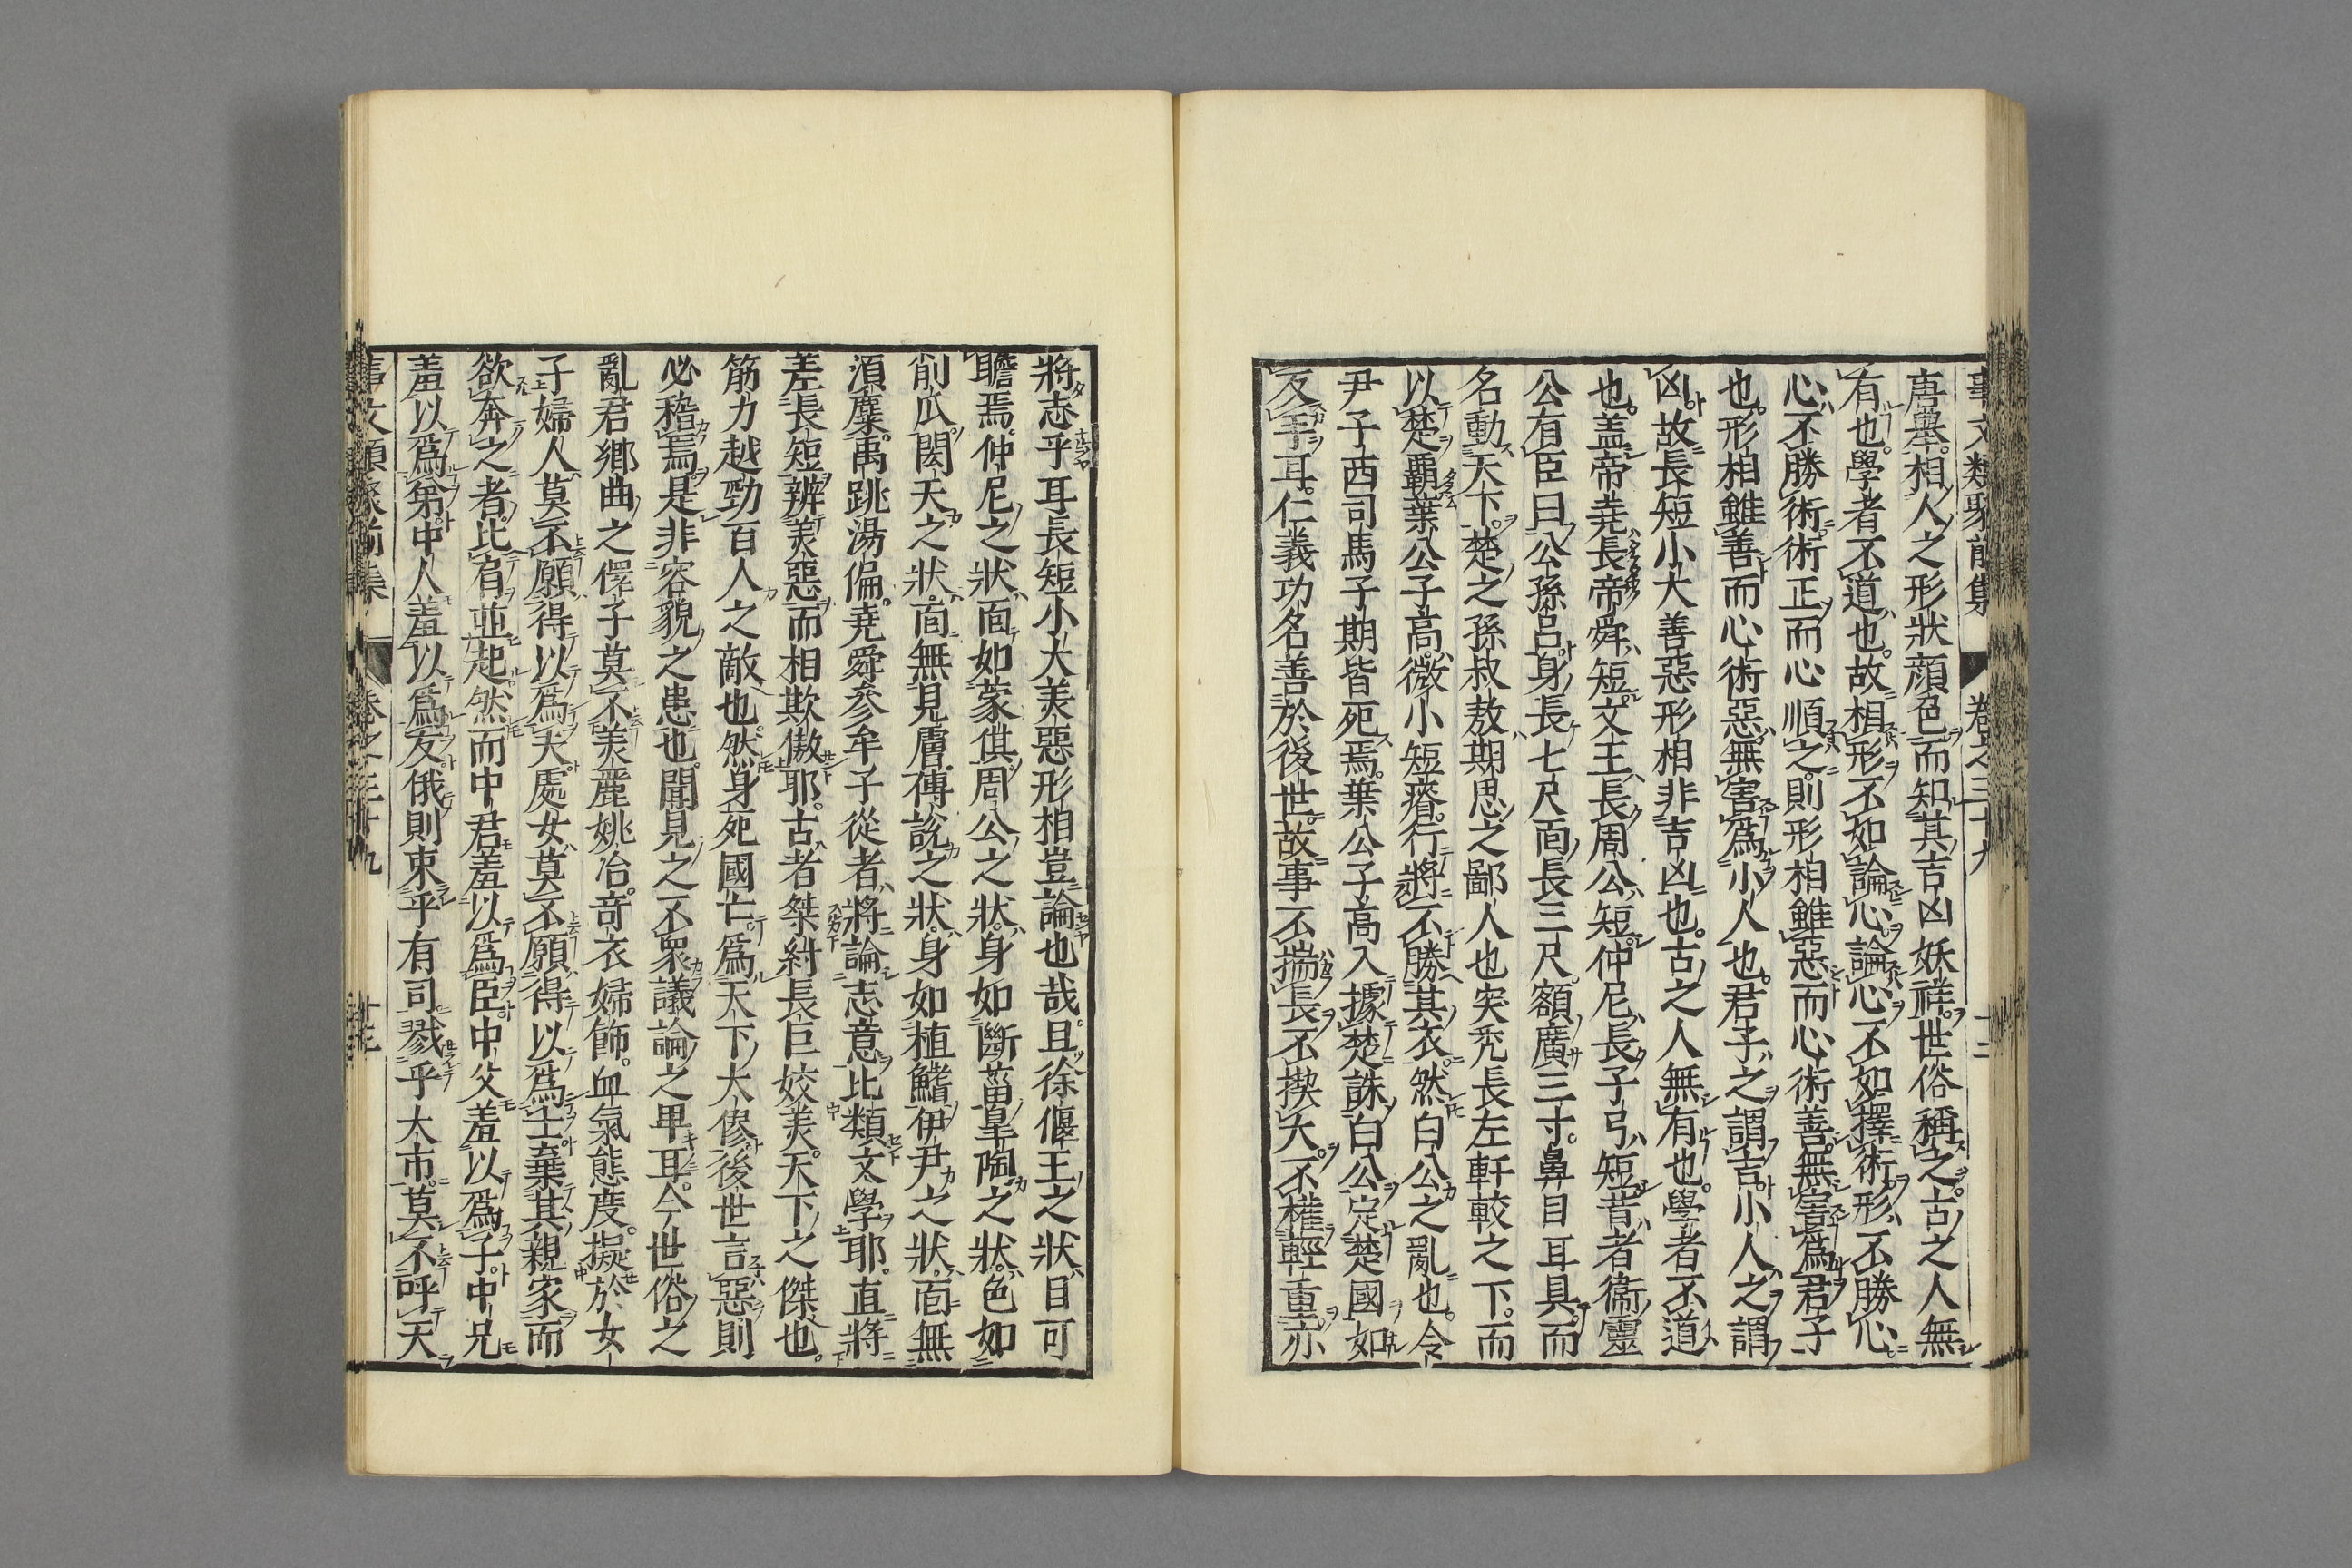 事文類聚前集 卷之三十九 十二
唐舉相人之形狀顔色而知其吉凶妖祥世俗稱之古之人無
有也學者不道也故相形不如論心論心不如擇術形不勝心
心不勝術術正而心順之則形相雖惡而心術善無害爲君子
也形相雖善而心術惡無害爲小人也君子之謂吉小人之謂
凶故長短小大善惡形相非吉凶也古之人無有也學者不道
也蓋帝堯長帝舜短文王長周公短仲尼長子弓短昔者衞靈
公有臣曰公孫呂身長七尺面長三尺額廣三寸鼻目耳具而
名動天下楚之孫叔敖期思之鄙人也突禿長左軒較之下而
以楚霸葉公子高微小短瘠行將不勝其衣然白公之亂也令
尹子西司馬子期皆死焉葉公子高入據楚誅白公定楚國如
反手耳仁義功名善於後世故事不揣長不揳大不權輕重亦
將志乎耳長短小大美惡形相豈論也哉且徐偃王之狀目可
瞻焉仲尼之狀面如蒙倛周公之狀身如斷菑皐陶之狀色如
削瓜閎夭之狀面無見膚傅說之狀身如植鰭伊尹之狀面無
須麋禹跳湯偏堯舜參牟子從者將論志意比類文學耶直將
差長短辨美惡而相欺傲耶古者桀紂長巨姣美天下之傑也
筋力越勁百人之敵也然身死國亡爲天下大僇後世言惡則
必稽焉是非容貌之患也聞見之不衆議論之卑耳今世俗之
亂君鄉曲之儇子莫不美麗姚冶奇衣婦飾血氣態度擬於女
子婦人莫不願得以爲夫處女莫不願得以爲士棄其親家而
欲奔之者比肩並起然而中君羞以爲臣中父羞以爲子中兄
羞以爲弟中人羞以爲友俄則束乎有司戮乎大市莫不呼天
事文類聚前集 卷之三十九 十三